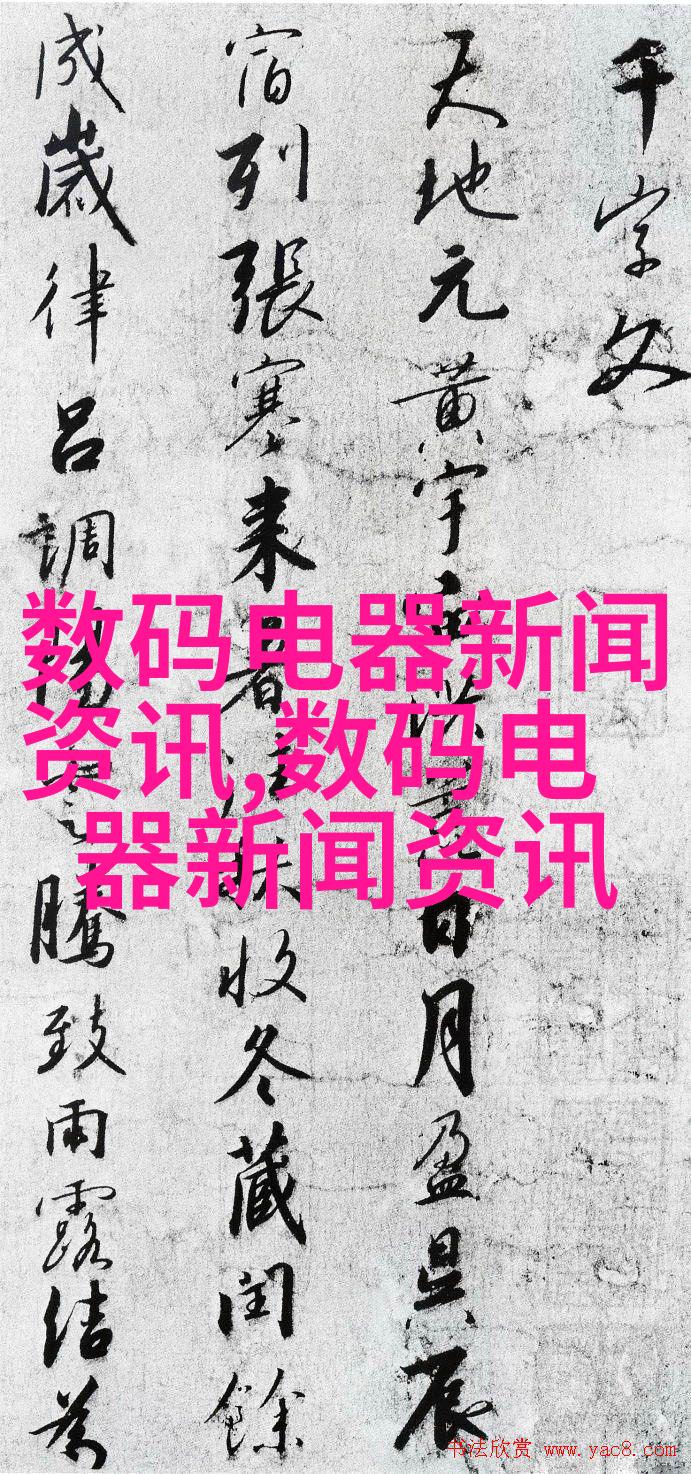 千字文
天地元黄宇日月盈昃辰
宿列張寒来暑收冬蔵閏餘
成歲律呂調騰致雨露結為
数码电器新闻
资讯,数码电
器新闻资讯
书法欣赏 www.yac8.com